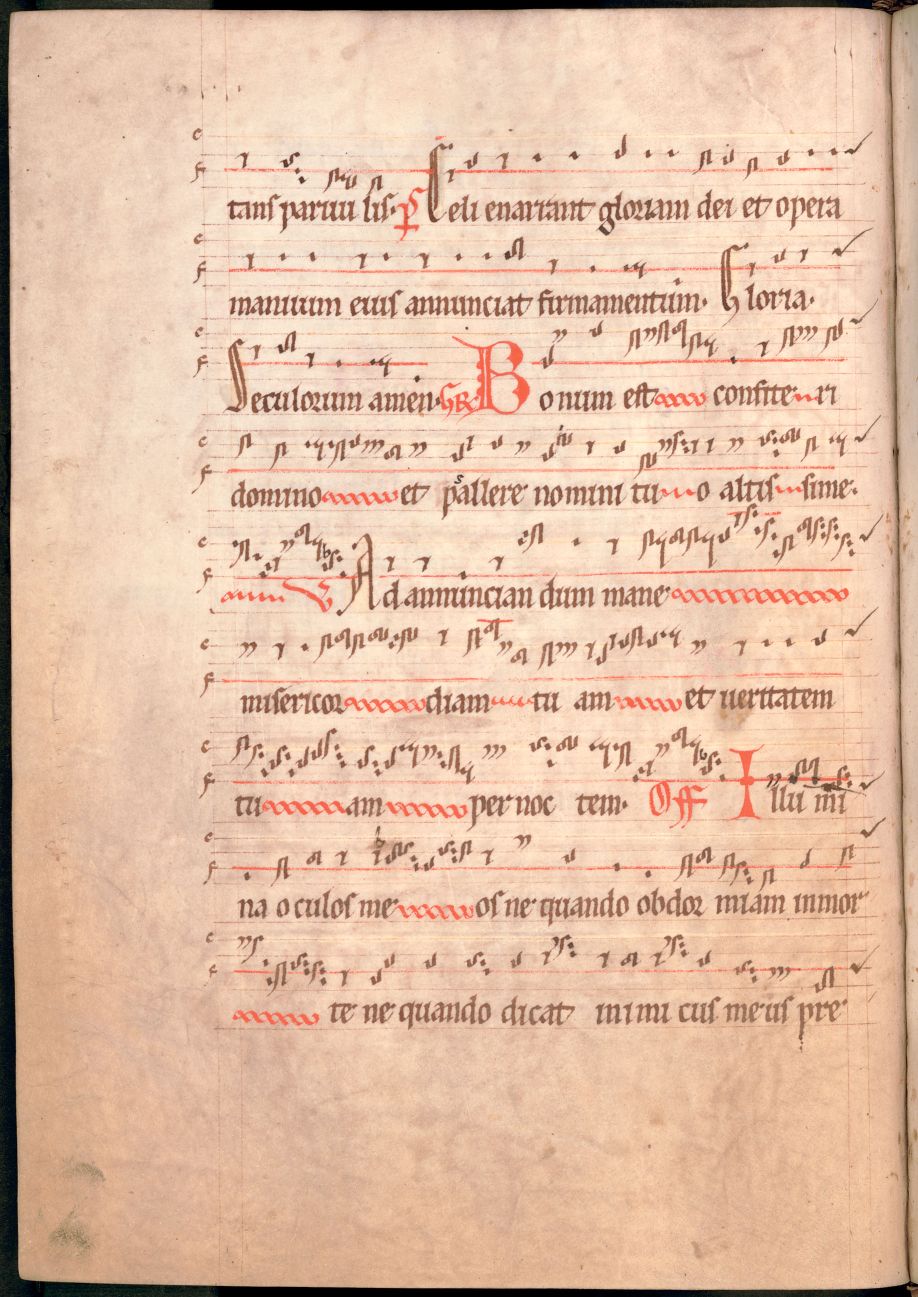 tans paruu lis· p̅s Celi enarrant gloriam dei et opera
manuum eius annunciat firmamentum· Gloria·
Seculorum amen· GR Bonum est confite ri
domino et psallere nomini tu o altis sime·
V Ad annuncian dum mane
misericor diam tu am et ueritatem
tu am per noc tem· Off Illu mi
na oculos me os ne quando obdor miam in mor
te ne quando dicat inimi cus meus pre